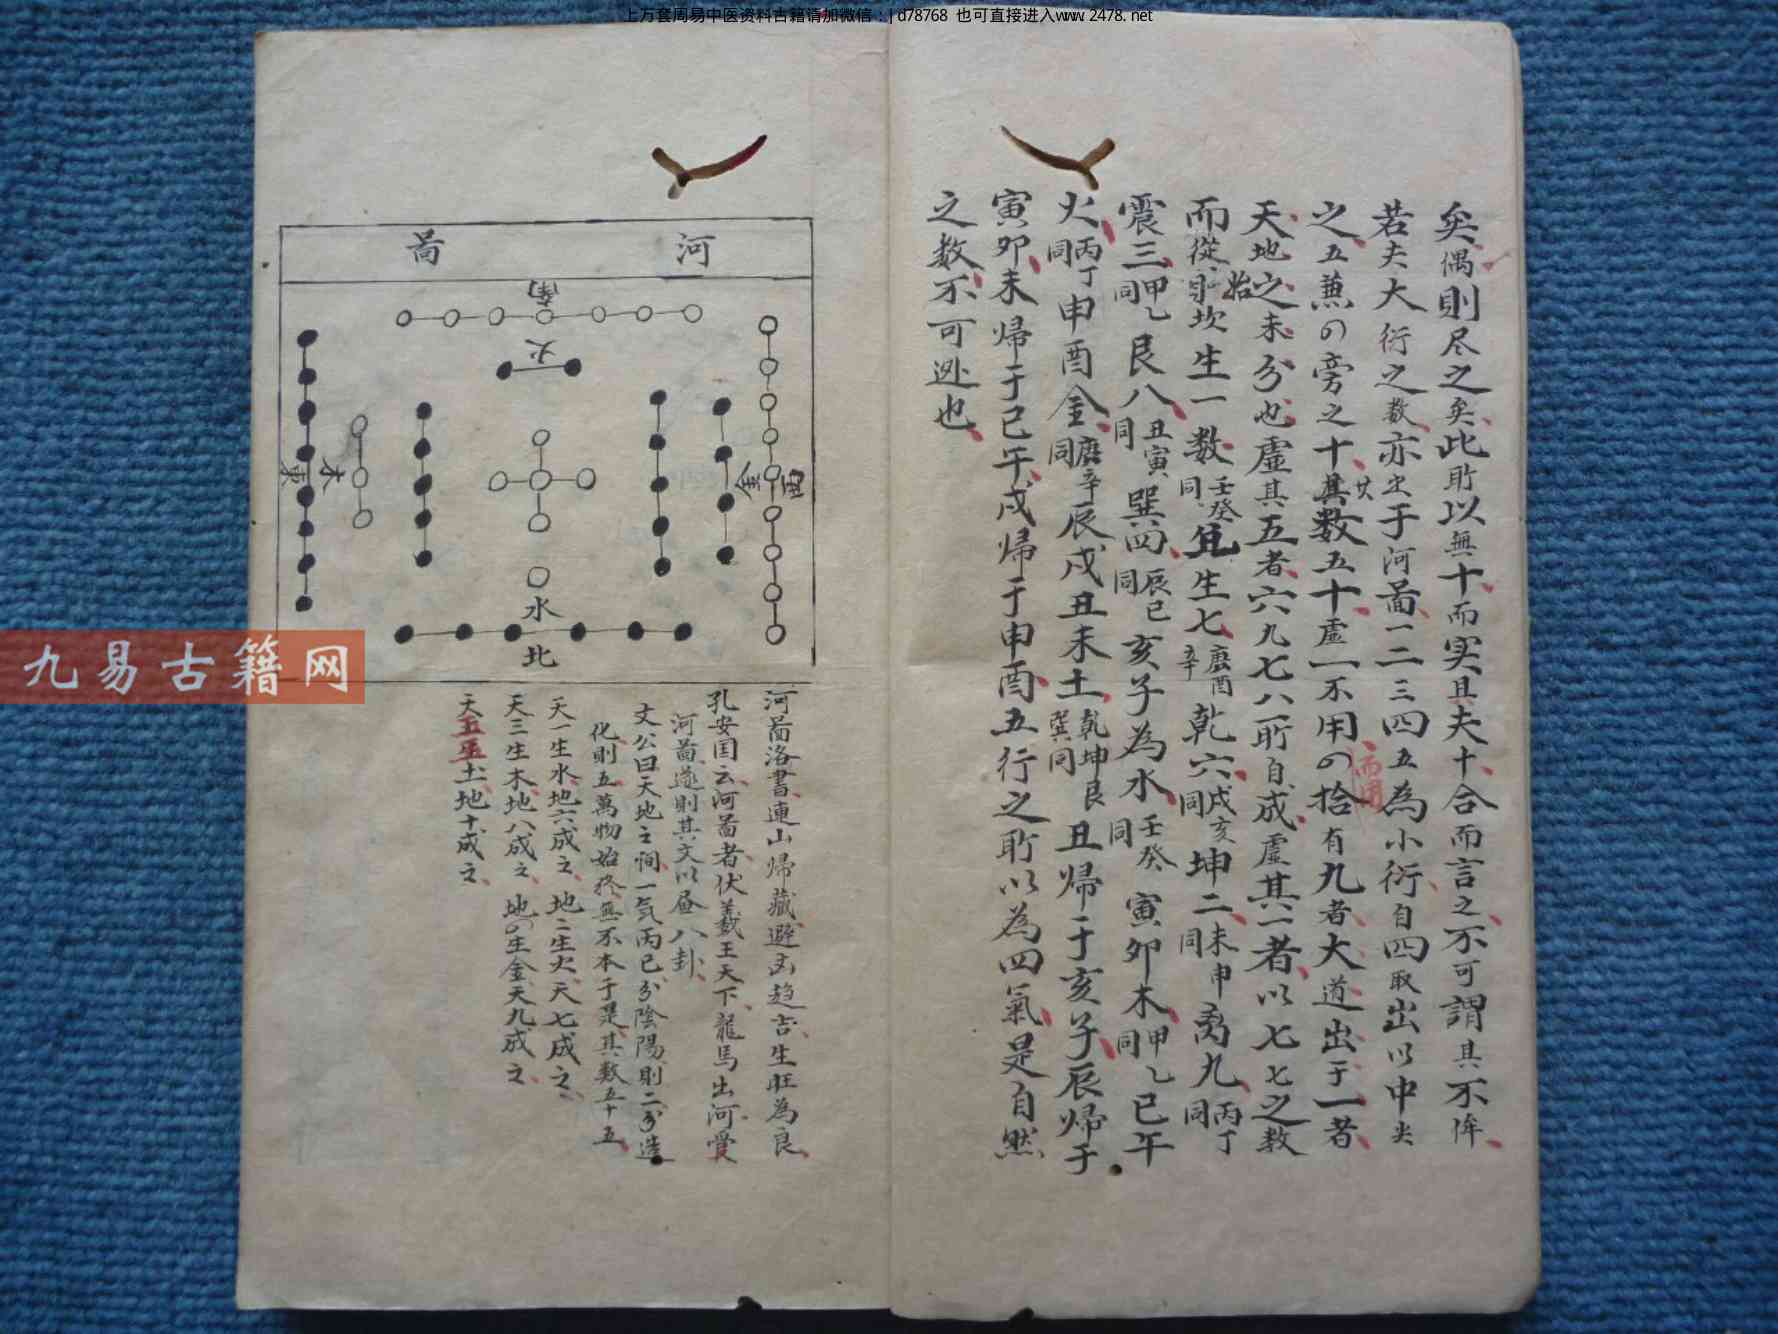 上万套周易中医资料古籍请加微信：jd78768 也可直接进入www.2478.net
矣偶則尽之矣此所以無十而实具夫十合而言之不可謂其不侔
若夫大衍之数亦出于河啚一二三四五為小衍自四取出以中央
之五兼の旁之十其数五十虚一不用の拾有九者大道出于一者
廿
而用
天地之未分也虚其五者六九七八所自成虚其二者以七七之数
始
而從坎生一数壬癸同兌生七庚酉辛乾六戌亥同坤二未申同离九丙丁同
震三甲乙同艮八丑寅同巽四辰巳同亥子為水壬癸同寅卯木甲乙同巳午
火丙丁同申酉金庚辛同辰戌丑未土乾坤艮巽同丑歸于亥子辰歸于
寅卯未歸于巳午戌歸于申酉五行之所以為四氣是自然
之数不可逃也
河啚
南
火
西
金
木
東
水
北
河啚洛書連山歸藏避凶趋吉生旺為良
孔安国云河啚者伏羲王天下龍馬出河
河啚遂則其文以畫八卦
文公曰天地之间一気而已分陰陽則二分造
化則五萬物始终無不本于是其数五十五
天一生水地六成之地二生火天七成之
天三生木地八成之地の生金天九成之
天五生土地十成之
九易古籍网